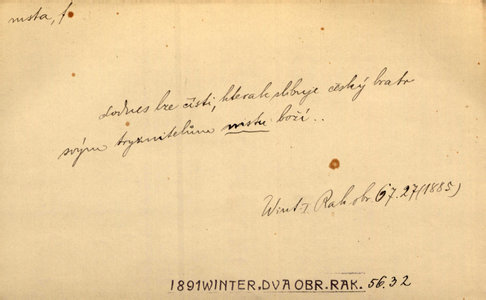 msta, f.
dodnes lze čísti, kterak slibuje český bratr
svým tryznitelům mstu boží..
Wint. Rak. obr. 67.27 (1885)
1891 WINTER. DVA OBR. RAK. 56.32